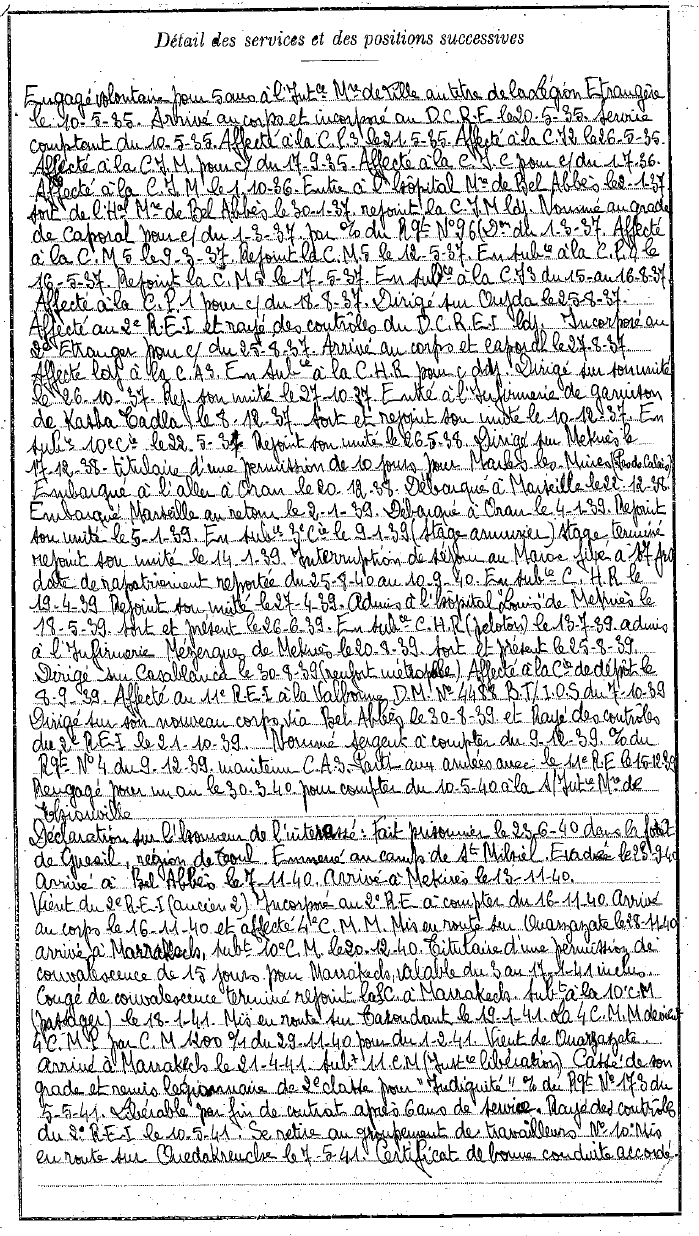 Détail des services et des positions successives
Engagé volontaire pour 5 ans à l'Intce Mre de Lille au titre de la Légion Etrangère
le 10-5-35. Arrivé au corps et incorporé au D.C.R.E le 20-5-35. service
comptant du 10-5-35. Affecté à la C.P.3 le 21-5-35. Affecté à la C.J2 le 26-5-35.
Affecté à la C.J.M. pour c/ du 17-9-35. Affecté à la C.J.C pour c/ du 1-7-36.
Affecté à la C.J.M. le 1.10-36. Entre à l'hôpital Mre de Bel Abbès le 2-1-37.
sort de l'Hal Mre de Bel Abbès le 30-1-37. rejoint la C.J.M ldj. Nommé au grade
de Caporal pour c/ du 1-3-37 par % du Rgt N°96 du 1-3-37. Affecté
à la C.M 5 le 9-3-37. Rejoint la C.M.5 le 12-5-37. En subce à la C.P.4 le
16-5-37. Rejoint la C.M.5 le 17-5-37. En subce à la C.J3 du 15 au 16-8-37.
Affecté à la C.P.1 pour c/ du 18-8-37. Dirigé sur Oujda le 25-8-37.
Affecté au 2e R.E.I et rayé des contrôles du D.C.R.E.I ldj. Incorporé au
2e Etranger pour c/ du 25-8-37. Arrivé au corps et caporal le 27-8-37
Affecté ldj à la C.A3. En subce à la C.H.R pour c ddj. Dirigé sur son unité
le 26-10-37. Rej. son unité le 27-10-37. Entré à l'Infirmerie de garnison
de Kasba Tadla le 8-12-37 sort et rejoint son unité le 10-12-37. En
subce 10e Cie le 22-5-38. Rejoint son unité le 26-5-38. Dirigé sur Meknès le
17-12-38. titulaire d'une permission de 10 jours pour Marles les Mines (Pas de Calais)
Embarqué à l'aller à Oran le 20.12.38. Débarqué à Marseille le 22-12-38.
Embarqué Marseille au retour le 2-1-39. Débarqué à Oran le 4-1-39. Rejoint
son unité le 5-1-39. En subce 3e Cie le 9-1-39 (stage armurier) stage terminé
rejoint son unité le 14-1-39. Interruption de séjour au Maroc fixe à 17 jrs
date de rapatriement reportée du 25-8-40 au 10-9-40. En subce C.H.R le
19-4-39 Rejoint son unité le 27-4-39. Admis à l'hôpital "Louis" de Meknès le
18-5-39. sort et présent le 26-6-39. En subce C.H.R (peloton) le 13-7-39. admis
à l'Infirmerie Mézergues de Meknès le 20-8-39. sort et présent le 25-8-39.
Dirigé sur Casablanca le 30-8-39 (renfort métropole) Affecté à la Cie de dépôt le
8-9-39. Affecté au 11e R.E.I à la Valbonne D.M. N° 4488 B.T/I.O.S du 7-10-39
Dirigé sur son nouveau corps via Bel Abbès le 30-8-39 et Rayé des contrôles
du 2e R.E.I le 21-10-39. Nommé sergent à compter du 9-12-39. % du
Rgt N° 4 du 9-12-39. maintenu C.A3. Parti aux armées avec le 11e R.E le 15-12-39
Rengagé pour un an le 30-3-40 pour compter du 10-5-40 à la S/Intce Mre de
Thionville
Déclaration sur l'honneur de l'intéressé: Fait prisonnier le 23-6-40 dans la forêt
de, région de Toul. Emmené au camp de St Mihiel. Evadé le 23-9-40
Arrivé à Bel Abbès le 7-11-40. Arrivé à Meknès le 13-11-40.
Vient du 2e R.E.I (ancien 2) Incorporé au 2e R.E à compter du 16-11-40. Arrivé
au corps le 16-11-40 et affecté 4e C.M.M. Mis en route sur Ouarzazate le 28-11-40
arrivé à Marrakech, subt 10e C.M. le 20-12-40. Titulaire d'une permission de
convalescence de 15 jours pour Marrakech, valable du 3 au 17-1-41 inclus.
Congé de convalescence terminé rejoint la C. à Marrakech. subt à la 10e C.M
(passager) le 18-1-41. Mis en route sur Taroudant le 19-1-41. La 4 C.M.M devient
4 C.M.P par C.M 1200 %1 du 29-11-40 pour du 1-2-41. Vient de Ouarzazate.
Arrivé à Marrakech le 21-4-41. subt 11.C.M (Inst ce libération) Cassé de son
grade et remis légionnaire de 2e classe pour "Indignité" % du Rgt N° 173 du
5-5-41. Libérable par fin de contrat après 6 ans de service. Rayé des contrôles
du 2e R.E.I le 10-5-41. Se retire au groupement de travailleurs N° 10. Mis
en route sur le 7-5-41. Certificat de bonne conduite accordé.